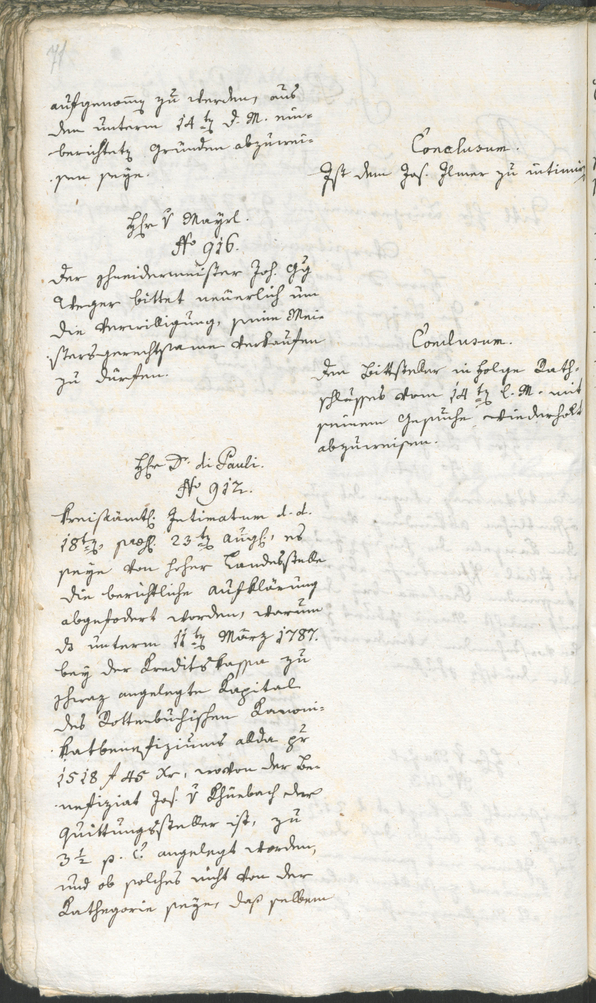 71
aufgenom̅en zu werden, aus
den unterm 14ten d. M. ein-
berichteten Gründen abzuwei-
sen seye.
Conclusum.
Ist dem Jos. Ilmer zu intimiren
Hhr v Mayrl.
No 916.
Der Schneidermeister Joh. Gg
Weger bittet neuerlich um
die Verwilligung, seine Mei-
stersgerechtsame verkaufen
zu dürfen.
Conclusum.
Den Bittsteller in Folge Rath-
schlusses vom 14ten l. M. mit
seinem Gesuche wiederholt
abzuweisen.
Hhr D. di Pauli.
No 912.
Kreisämtl. Intimatum d. d.
18ten, präs. 23ten Augt, es
seye von hoher Landesstelle
die berichtliche Aufklärung
abgefodert worden, warum
ds unterm 11ten März 1787.
bey der Kreditskassa zu
Schwaz angelegte Kapital
des Rottenbuchischen Kanoni-
katbenefiziums allda pr
1518 f 45 Xr, wovon der Be-
nefiziat Jos. v Khuebach der
Quittungssteller ist, zu
3 1/2 p. C angelegt worden,
und ob solches nicht von der
Kathegorie seye, daß selbem